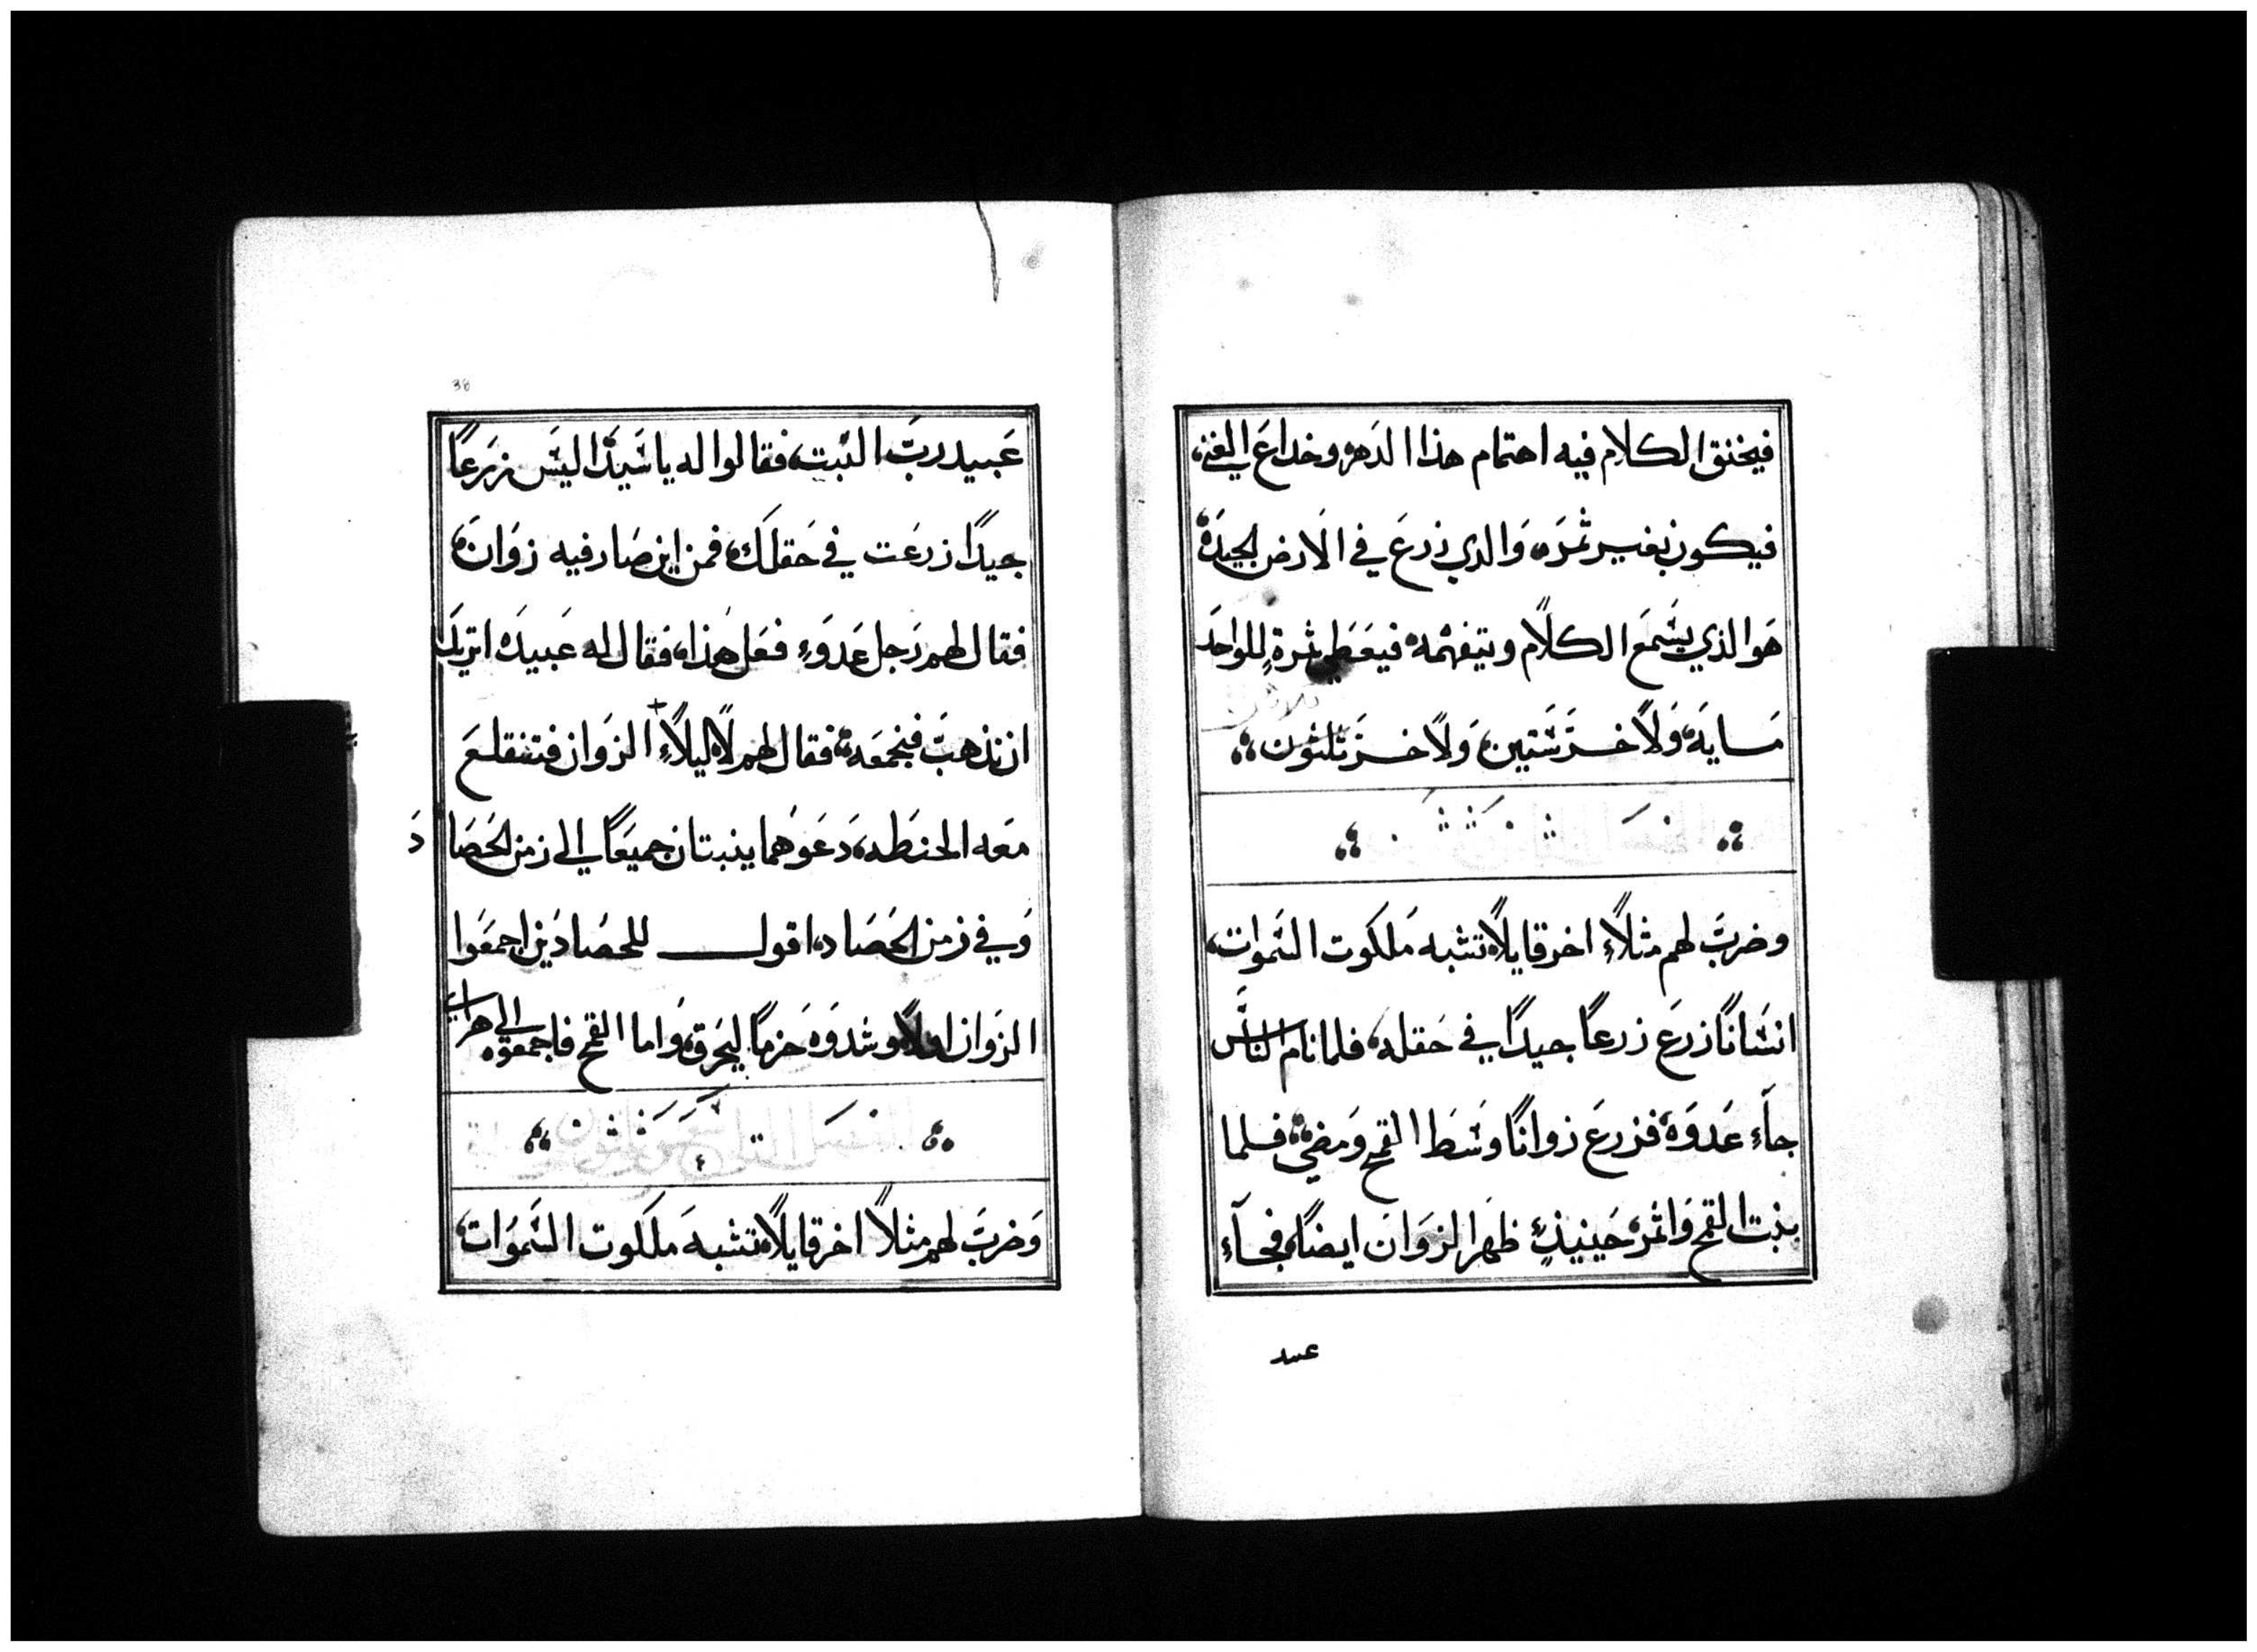 فيخنق الكلام فيه اهتمام هذا الدهر وخداع الغنى،
فيكون بغير ثمره، والدي زرع في الارض الجيدة
هو الذي يسمع الكلام ويتفهمه فيعطي ثمرة للواحد
مايه، ولاخر ستين، ولاخر ثلثون
وضرب لهم مثلاً اخر قايلاً، تشبه ملكوت السموات،
انساناً زرع زرعاً جيداً في حقله، فلما نام الناس
جاء عدوه فزرع زواناً وسط القمح ومضى، فلما
نبت القمح واثمر، حينيذٍ ظهر الزوان ايضاً، فجاء
عبيد
38
عبيد رب البيت، فقالوا له يا سيد اليس زرعاً
جيداً زرعت في حقلك، فمن اين صار فيه زوان،
فقال لهم رجل عدو فعل هذا، فقال له عبيده اتريد
ان نذهب فنجمعه، فقال لهم لا، ليلاً الزوان فتنقلع
معه الحنطه، دعوهما ينبتان جميعاً الى زمن الحصاد
وفي زمن الحصاد، اقول للحصادين اجمعوا
الزوان اولاً وشدوه حزماً ليحرق، واما القمح فاجمعوه الى هراي
وضرب لهم مثلاً اخر قايلاً، تشبه ملكوت السموات،